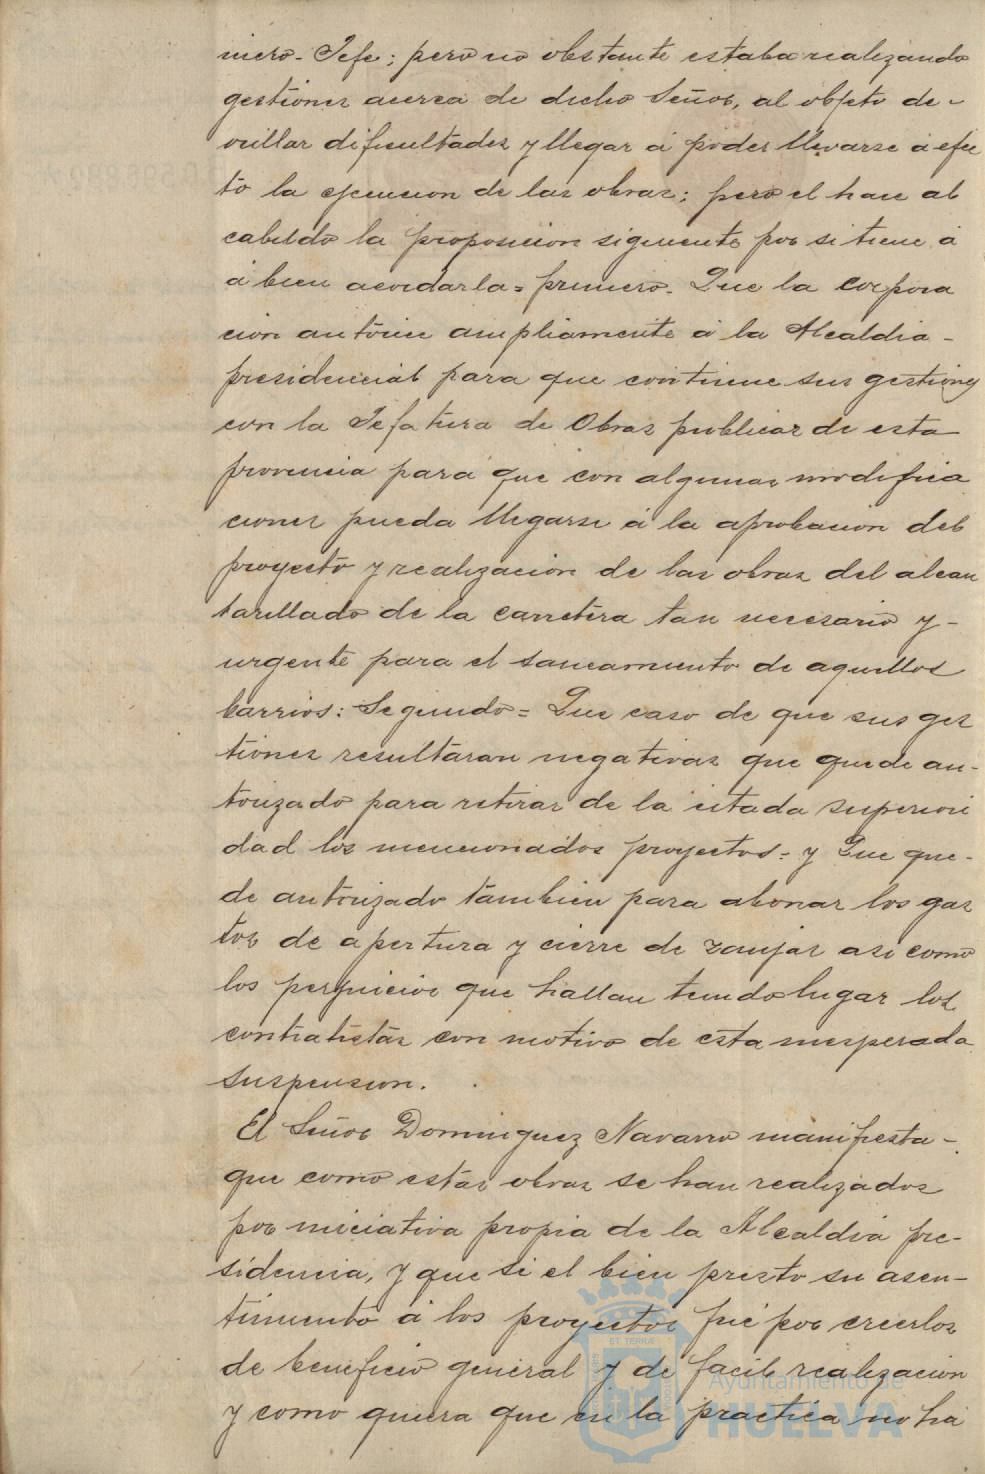 niero-Jefe; pero no obstante estaba realizando
gestiones acerca de dicho Señor, al objeto de-
orillar dificultades y llegar á poder llevarse á efec
to la ejecucion de las obras; pero el hace al
cabildo la proposicion siguiente por si tiene á
á bien acordarla= primero- Que la corpora
cion autorice ampliamente á la Alcaldia-
presidencial para que continue sus gestiones
con la Jefatura de Obras publicas de esta
provincia para que con algunas modifica
ciones pueda llegarse á la aprobacion del
proyecto y realizacion de las obras del alcan
tarillado de la carretera tan necesario y-
urgente para el saneamiento de aquellos
barrios: Segundo= Que caso de que sus ges
tiones resultaran negativas que quede au-
torizado para retirar de la citada superiori
dad los mencionados proyectos= y Que que-
de autorizado tambien para abonar los gas
tos de apertura y cierre de zanjas asi como
los perjuicios que hallan tenido lugar los
contratistas con motivo de esta inesperada
suspension.
El Señor Dominguez Navarro manifiesta-
que como estas obras se han realizados
por iniciativa propia de la Alcaldia pre-
sidencia, y que si el bien presto su asen-
timiento á los proyectos fué por creerlos
de beneficio general y de facil realizacion
y como quiera que en la practica no ha
Ayuntamiento de
HUELVA